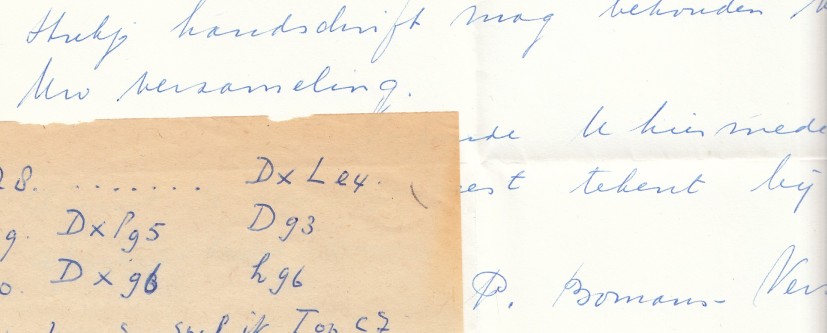 Stukje handschrift mag behouden
Uw verzameling.
U hiermede
tekent bij
P. Bomans-
28. ........ DxLe4.
9. DxPg5 Dg3
0. Dxg6 hg6
ik Ton c7